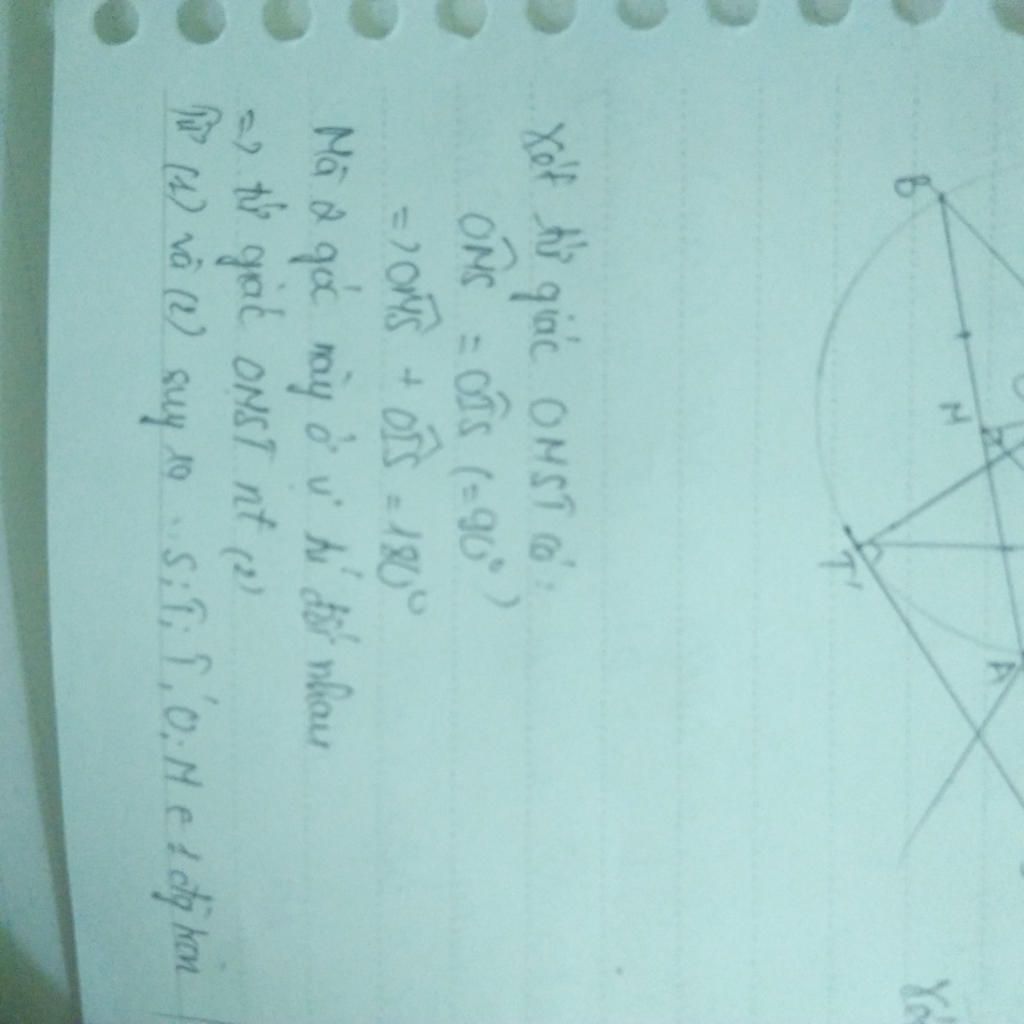 Xét tứ giác ONST có:
ONS = OTS (=90°)
=> ONS + OTS = 180°
Mà 2 góc này ở vị trí đối nhau
=> tứ giác ONST nt (2)
Từ (1) và (2) suy ra S; T; T', O; N
B
N
T'
A